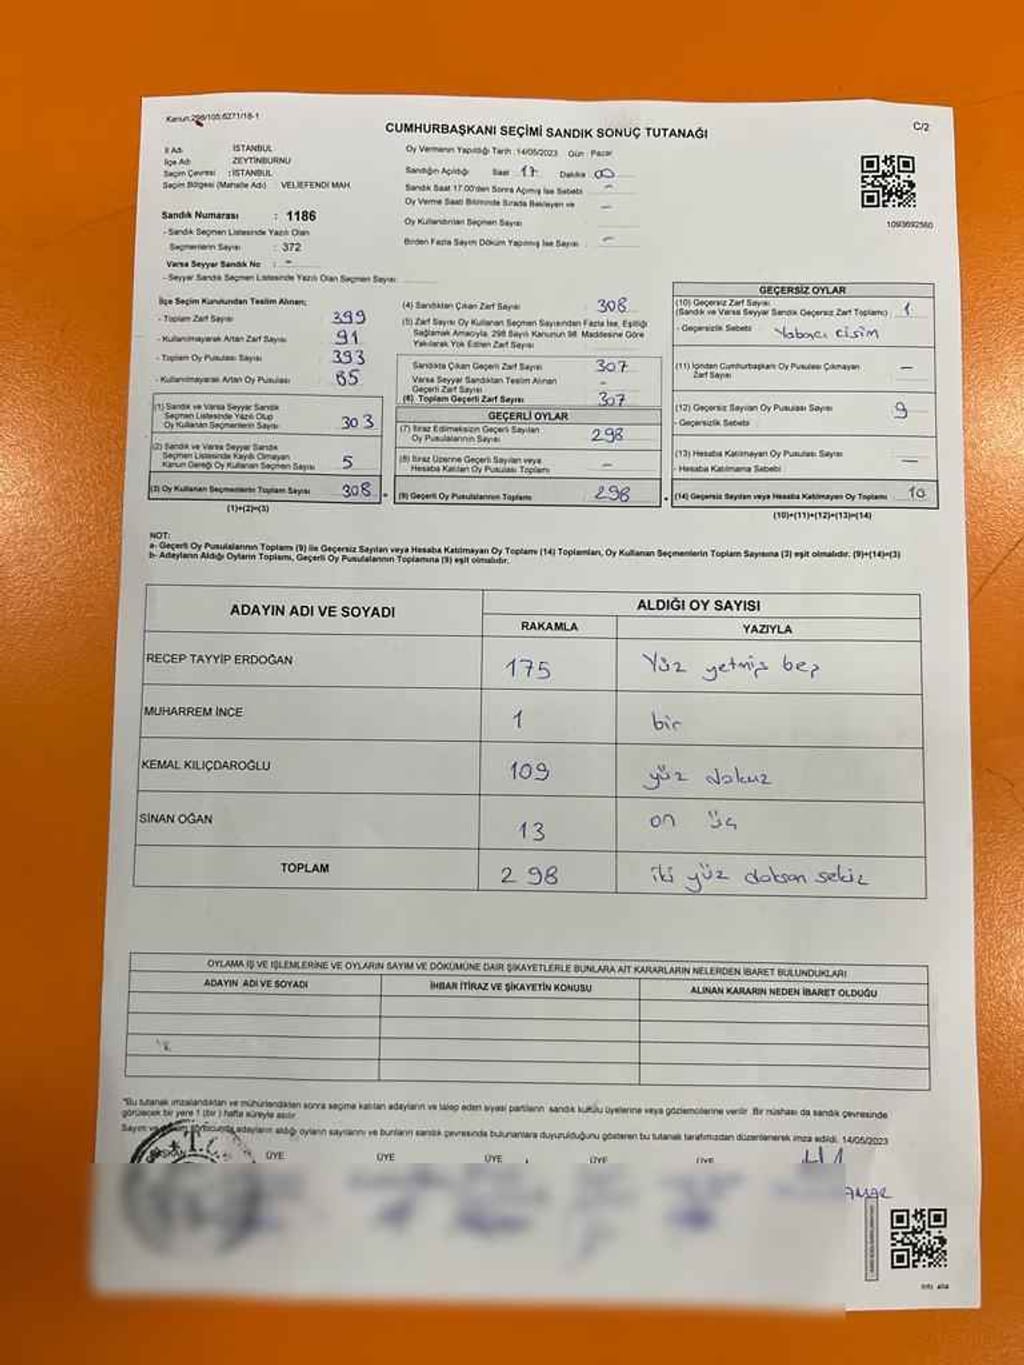 Kanun:298/105;6271/18-1
CUMHURBAŞKANI SEÇİMİ SANDIK SONUÇ TUTANAĞI
C/2
İl Adı : İSTANBUL
İlçe Adı : ZEYTİNBURNU
Seçim Çevresi : İSTANBUL
Seçim Bölgesi (Mahalle Adı) VELİEFENDİ MAH.
Oy Vermenin Yapıldığı Tarih :14/05/2023 Gün : Pazar
Sandığın Açıldığı Saat 17 Dakika 00
Sandık Saat 17.00'den Sonra Açılmış İse Sebebi –
Oy Verme Saati Bitiminde Sırada Bekleyen ve
Oy Kullandırılan Seçmen Sayısı –
Birden Fazla Sayım Döküm Yapılmış İse Sayısı –
1093692560
Sandık Numarası : 1186
- Sandık Seçmen Listesinde Yazılı Olan
Seçmenlerin Sayısı : 372
Varsa Seyyar Sandık No : –
- Seyyar Sandık Seçmen Listesinde Yazılı Olan Seçmen Sayısı:
İlçe Seçim Kurulundan Teslim Alınan;
- Toplam Zarf Sayısı 399
- Kullanılmayarak Artan Zarf Sayısı 91
- Toplam Oy Pusulası Sayısı 393
- Kullanılmayarak Artan Oy Pusulası 85
(1) Sandık ve Varsa Seyyar Sandık
Seçmen Listesinde Yazılı Olup
Oy Kullanan Seçmenlerin Sayısı 303
(2) Sandık ve Varsa Seyyar Sandık
Seçmen Listesinde Kaydı Olmayan
Kanun Gereği Oy Kullanan Seçmen Sayısı 5
(3) Oy Kullanan Seçmenlerin Toplam Sayısı 308
(1)+(2)=(3)
(4) Sandıktan Çıkan Zarf Sayısı 308
(5) Zarf Sayısı Oy Kullanan Seçmen Sayısından Fazla İse, Eşitliği
Sağlamak Amacıyla, 298 Sayılı Kanunun 98. Maddesine Göre
Yakılarak Yok Edilen Zarf Sayısı
Sandıkta Çıkan Geçerli Zarf Sayısı 307
Varsa Seyyar Sandıktan Teslim Alınan
Geçerli Zarf Sayısı –
(6) Toplam Geçerli Zarf Sayısı 307
GEÇERLİ OYLAR
(7) İtiraz Edilmeksizin Geçerli Sayılan
Oy Pusulalarının Sayısı 298
(8) İtiraz Üzerine Geçerli Sayılan veya
Hesaba Katılan Oy Pusulası Toplamı –
(9) Geçerli Oy Pusulalarının Toplamı 298
GEÇERSİZ OYLAR
(10) Geçersiz Zarf Sayısı
(Sandık ve Varsa Seyyar Sandık Geçersiz Zarf Toplamı) : 1
- Geçersizlik Sebebi : Yabancı cisim
(11) İçinden Cumhurbaşkanı Oy Pusulası Çıkmayan
Zarf Sayısı –
(12) Geçersiz Sayılan Oy Pusulası Sayısı 9
- Geçersizlik Sebebi
(13) Hesaba Katılmayan Oy Pusulası Sayısı –
- Hesaba Katılmama Sebebi
(14) Geçersiz Sayılan veya Hesaba Katılmayan Oy Toplamı 10
(10)+(11)+(12)+(13)=(14)
NOT:
a- Geçerli Oy Pusulalarının Toplamı (9) ile Geçersiz Sayılan veya Hesaba Katılmayan Oy Toplamı (14) Toplamları, Oy Kullanan Seçmenlerin Toplam Sayısına (3) eşit olmalıdır. (9)+(14)=(3)
b- Adayların Aldığı Oyların Toplamı, Geçerli Oy Pusulalarının Toplamına (9) eşit olmalıdır.
ADAYIN ADI VE SOYADI
ALDIĞI OY SAYISI
RAKAMLA YAZIYLA
RECEP TAYYİP ERDOĞAN 175 Yüz yetmiş beş
MUHARREM İNCE 1 bir
KEMAL KILIÇDAROĞLU 109 yüz dokuz
SİNAN OĞAN 13 on üç
TOPLAM 298 iki yüz doksan sekiz
OYLAMA İŞ VE İŞLEMLERİNE VE OYLARIN SAYIM VE DÖKÜMÜNE DAİR ŞİKAYETLERLE BUNLARA AİT KARARLARIN NELERDEN İBARET BULUNDUKLARI
ADAYIN ADI VE SOYADI İHBAR İTİRAZ VE ŞİKAYETİN KONUSU ALINAN KARARIN NEDEN İBARET OLDUĞU
*Bu tutanak imzalandıktan ve mühürlendikten sonra seçime katılan adayların ve talep eden siyasi partilerin sandık kurulu üyelerine veya gözlemcilerine verilir. Bir nüshası da sandık çevresinde
görülecek bir yere 1 (bir) hafta süreyle asılır.
Sayım ve adayların aldığı oyların sayılarını ve bunların sandık çevresinde bulunanlara duyurulduğunu gösteren bu tutanak tarafımızdan düzenlenerek imza edildi. 14/05/2023
T.C.
BAŞKAN ÜYE ÜYE ÜYE ÜYE ÜYE